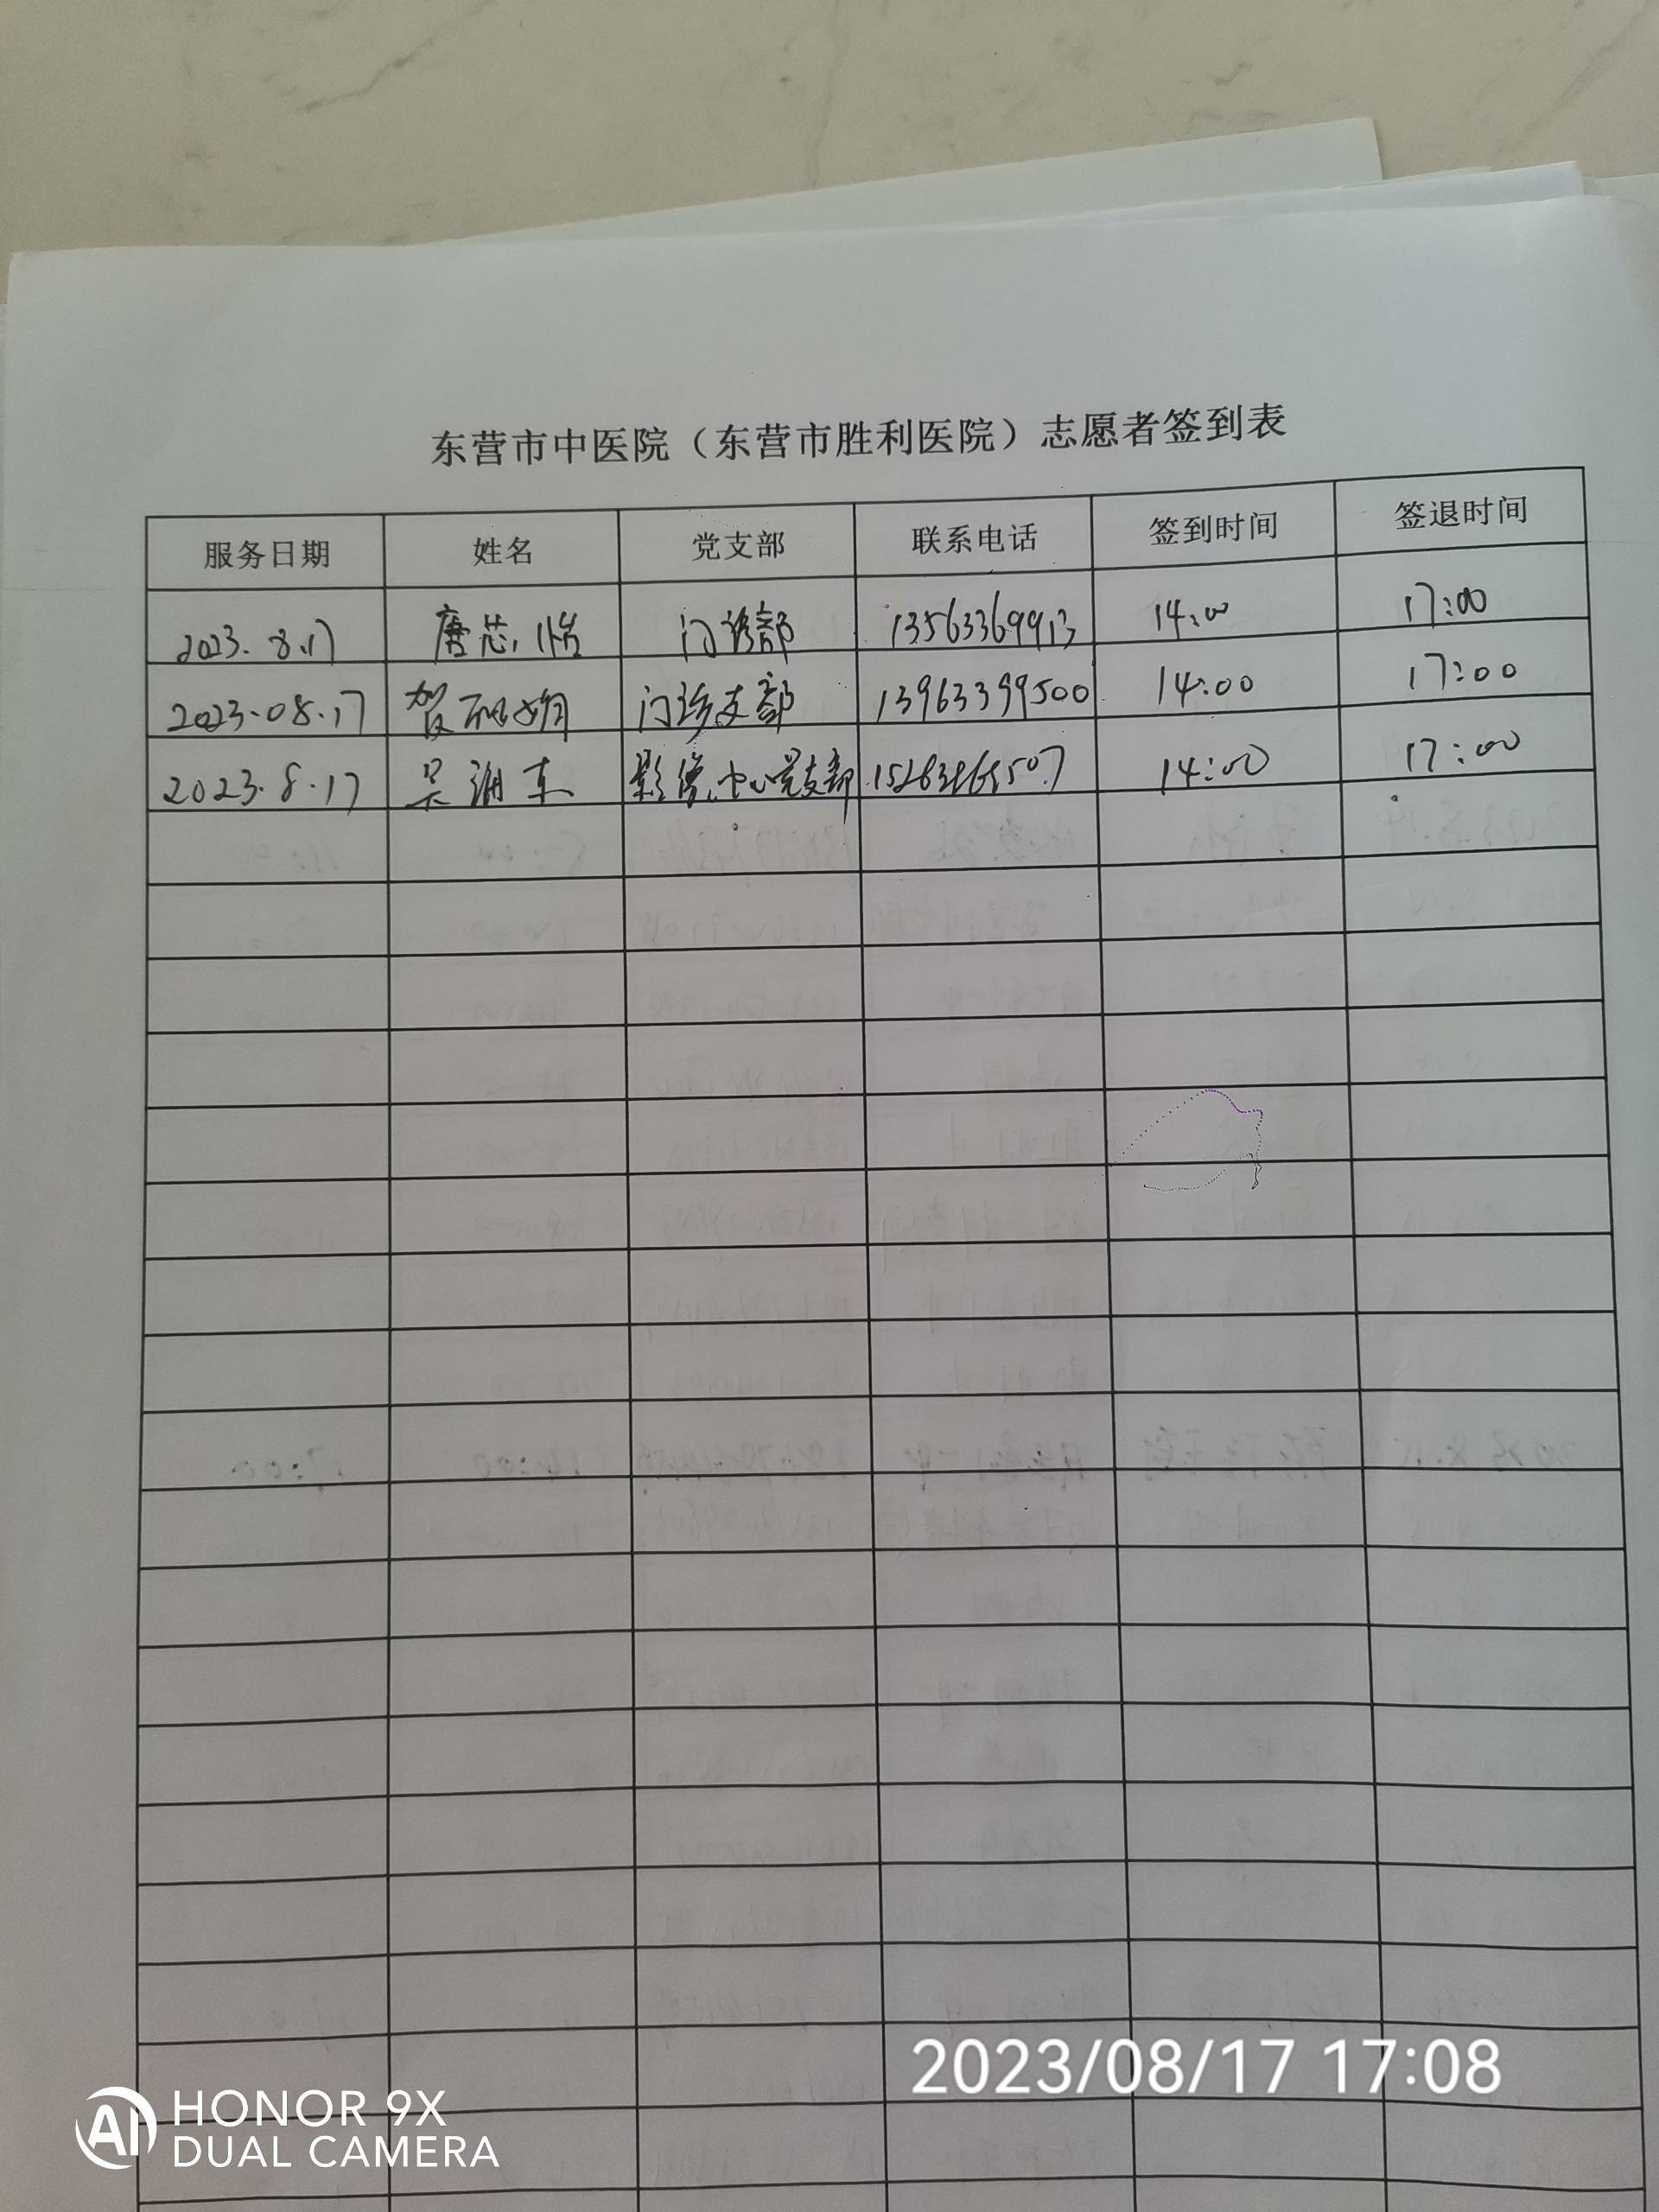 东营市中医院（东营市胜利医院）志愿者签到表
服务日期 姓名 党支部 联系电话 签到时间 签退时间
2023.8.17 唐芯怡 门诊部 13563369913 14:00 17:00
2023.08.17 贺丽娟 门诊支部 13963399500 14:00 17:00
2023.8.17 吴 东 影像中心党支部 14:00 17:00
2023/08/17 17:08
AI HONOR 9X
DUAL CAMERA